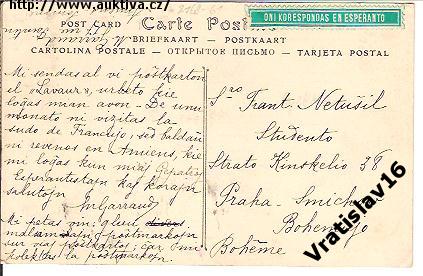 http://www.auktiva.cz/
POST CARD Carte Postale
ONI KORESPONDAS EN ESPERANTO
BRIEFKAART — POSTKAART
CARTOLINA POSTALE — ОТКРЫТОЕ ПИСЬМО — TARJETA POSTAL
Mi sendas al vi poŝtkarton
el "Lavaur", urbeto kie
loĝas mian avon - De unu
monato ni vizitas la
sudo de Francujo, sed baldaŭ
ni revenos en Amiens, kie
mi loĝas kun miaj Gepatroj
Esperantestan kaj koran
saluton
MJarraud
Mi petas vin; gluu
poŝtmarkon
sur viaj poŝtkartoj; ĉar mi
kolektas la poŝtmarkojn.
Sro Frant. Netušil
Studento
Strato Kinskelio 38
Praha - Smichov
Bohemujo
Bohême
Vratislav16